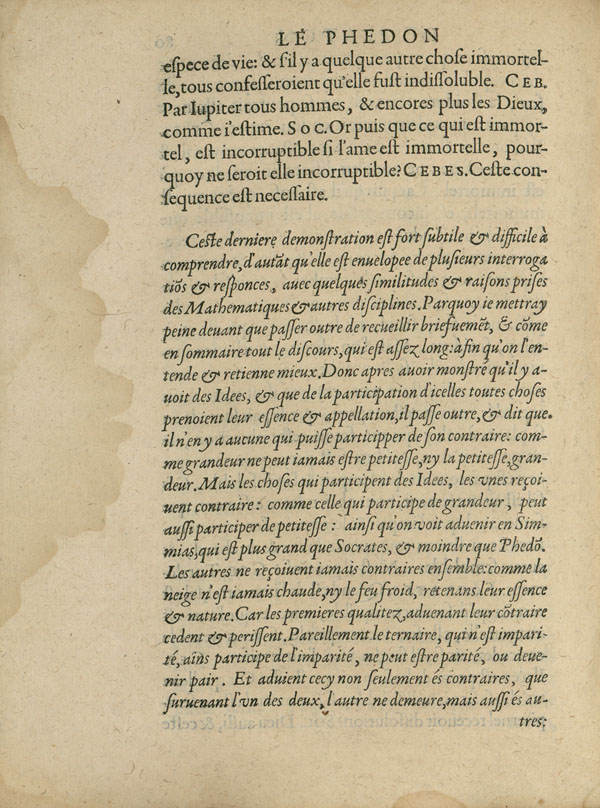 LE PHEDON
eſpece de vie: & ſ'il y a quelque autre choſe immortel-
le, tous confeſſeroient qu'elle fuſt indiſſoluble. CEB.
Par Iupiter tous hommes, & encores plus les Dieux,
comme i'eſtime. SOC. Or puis que ce qui eſt immor-
tel, eſt incorruptible ſi l'ame eſt immortelle, pour-
quoy ne ſeroit elle incorruptible? CEBES. Ceſte con-
ſequence eſt neceſſaire.
Ceſte derniere demonſtration eſt fort ſubtile & difficile à
comprendre, d'autãt qu'elle eſt enuelopee de pluſieurs interroga
tiõs & reſponces, auec quelques ſimilitudes & raiſons priſes
des Mathematiques & autres diſciplines. Parquoy ie mettray
peine deuant que paſſer outre de recueillir briefuemẽt, & cõme
en ſommaire tout le diſcours, qui eſt aſſez long: à fin qu'on l'en-
tende & retienne mieux. Donc apres auoir monſtré qu'il y a-
uoit des Idees, & que de la participation d'icelles toutes choſes
prenoient leur eſſence & appellation, il paſſe outre, & dit que
il n'en y a aucune qui puiſſe participper de ſon contraire: com-
me grandeur ne peut iamais eſtre petiteſſe, ny la petiteſſe, gran-
deur. Mais les choſes qui participent des Idees, les vnes reçoi-
uent contraire: comme celle qui participe de grandeur, peut
auſſi participer de petiteſſe: ainſi qu'on voit aduenir en Sim-
mias, qui eſt plus grand que Socrates, & moindre que Phedõ.
Les autres ne reçoiuent iamais contraires enſemble: comme la
neige n'eſt iamais chaude, ny le feu froid, retenans leur eſſence
& nature. Car les premieres qualitez, aduenant leur cõtraire
cedent & periſſent. Pareillement le ternaire, qui n'eſt impari-
té, ains participe de l'imparité, ne peut eſtre parité, ou deue-
nir pair. Et aduient cecy non ſeulement és contraires, que
ſuruenant l'vn des deux, l'autre ne demeure, mais auſſi és au-
tres: